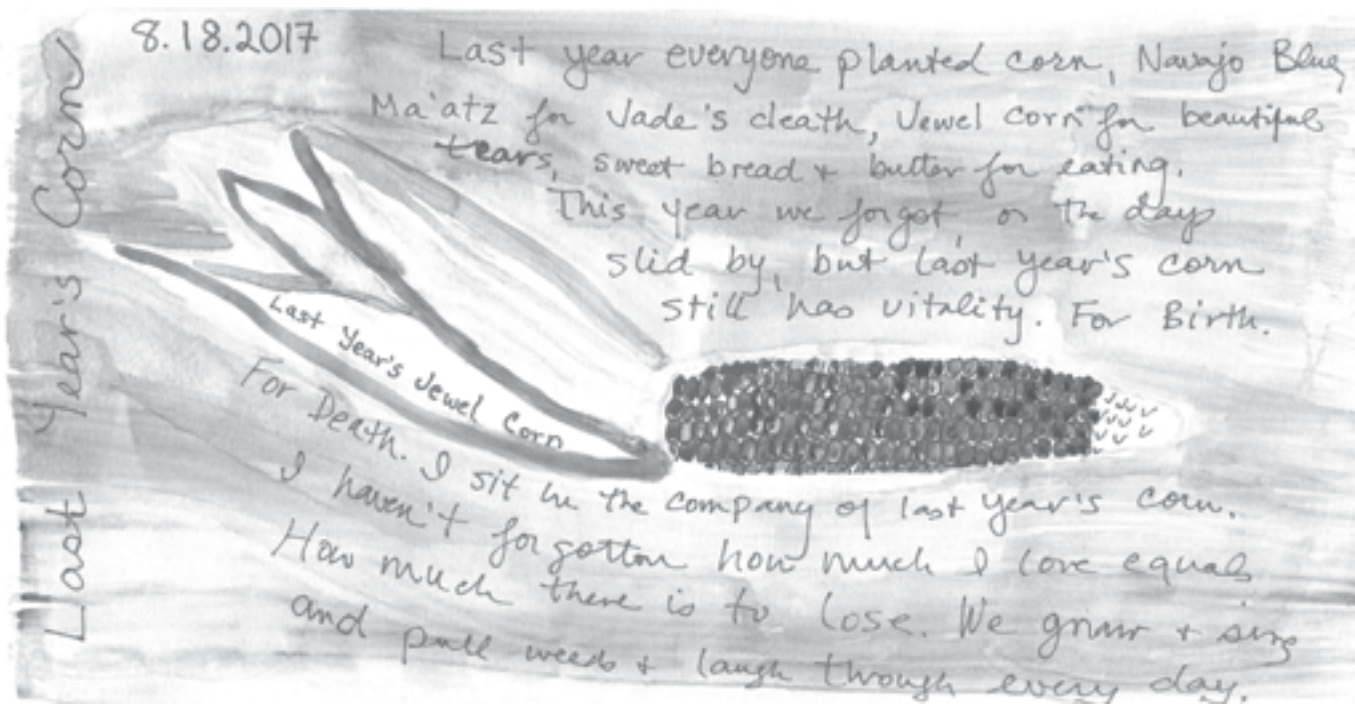 Last Year's Corn
8.18.2017
Last year everyone planted corn, Navajo Blue,
Ma'atz for Jade's death, Jewel Corn for beautiful
tears, sweet bread & butter for eating.
This year we forgot, or the days
slid by, but last year's corn
still has vitality. For Birth.
Last Year's Jewel Corn
For Death. I sit in the company of last year's corn.
I haven't forgotton how much I love equals
How much there is to lose. We gnaw & sing
and pull weeds & laugh through every day.